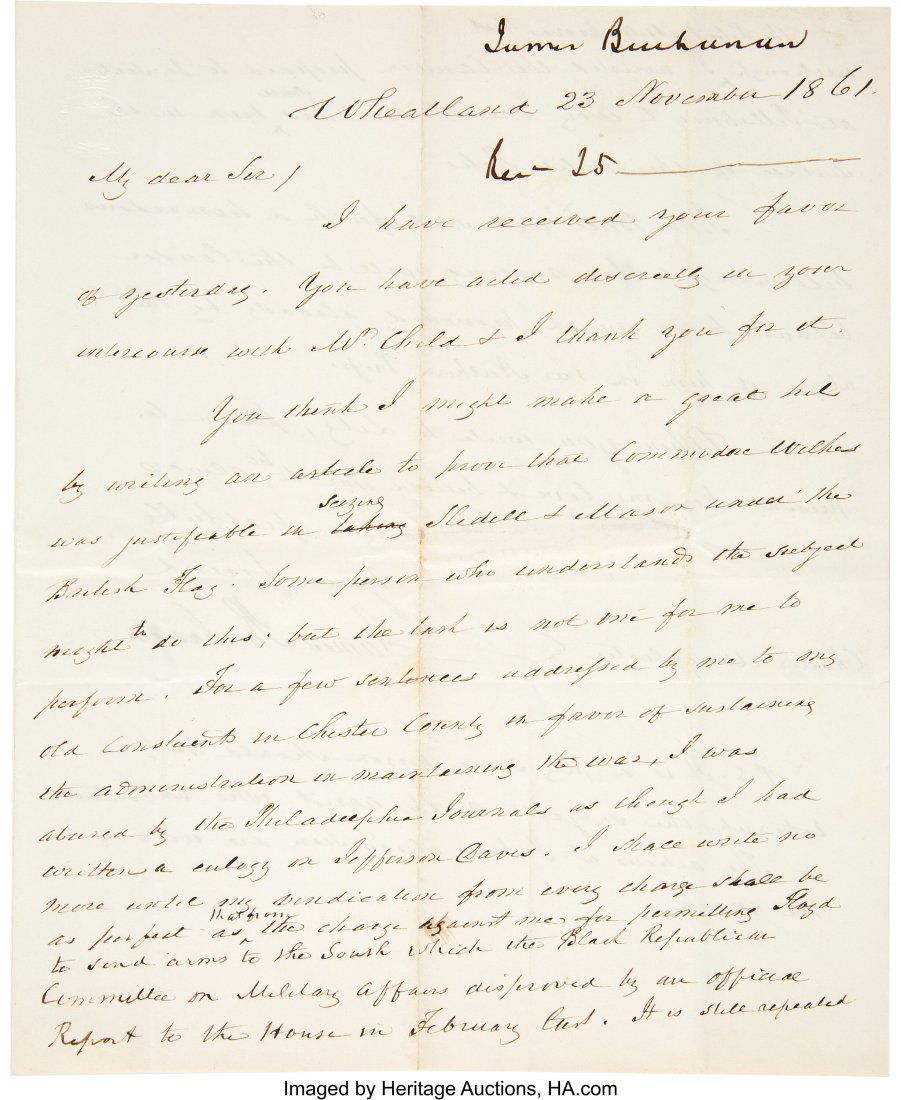 James Buchanan
Wheatland 23 November 1861.
Rec 25
My dear Sir/
I have received your favor
of yesterday. You have acted discreetly in your
intercourse with Mr Child & I thank you for it.
You think I might make a great hit
by writing an article to prove that Commodore Wilkes
seizing
was justifiable in taking Slidell & Mason under the
British Flag. Some person who understands the subject
might do this; but the task is not one for me to
perform. For a few sentences addressed by me to my
old Constituents in Chester County in favor of sustaining
the administration in maintaining the war, I was
abused by the Philadelphia Journals as though I had
written a eulogy on Jefferson Davis. I shall write no
more until my vindication from every charge shall be
that from
as perfect as the charge against me for permitting Floyd
to send arms to the South which the Black Republican
Committee on Military Affairs disproved by an official
Report to the House in February last. It is still repeated
Imaged by Heritage Auctions, HA.com